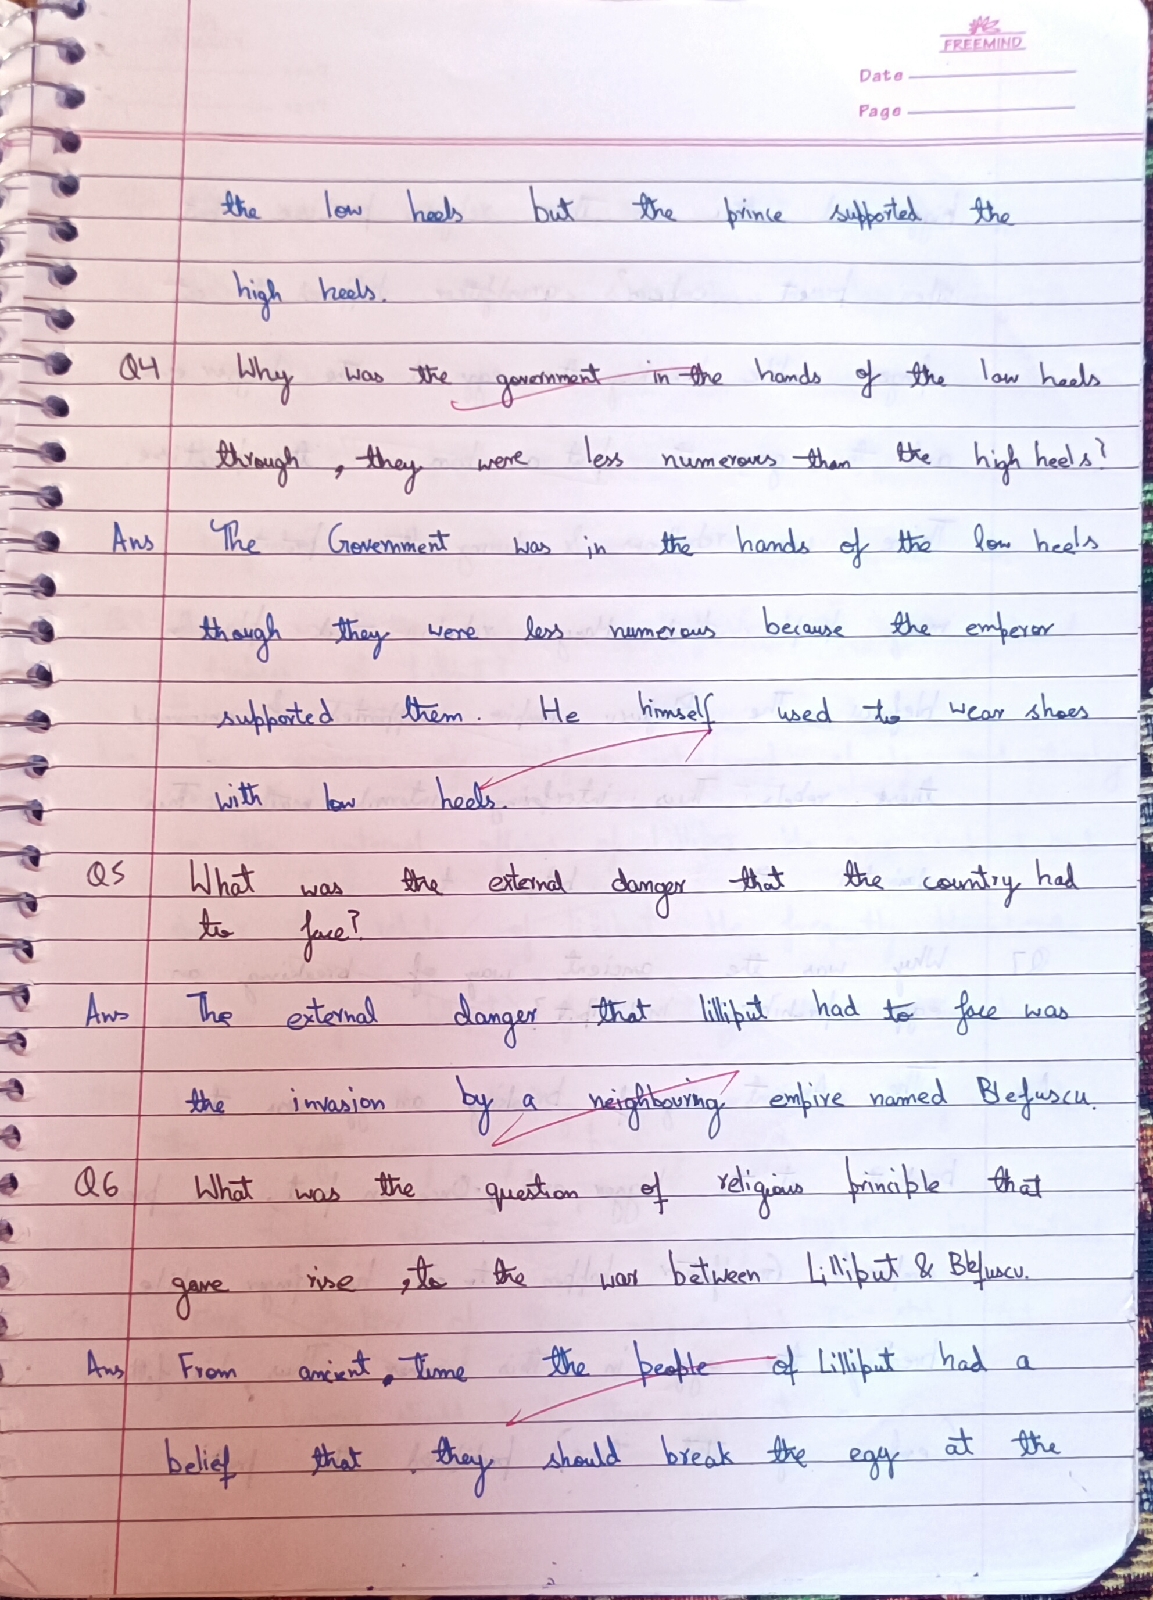 FREEMIND
Date
Page
the low heels but the prince supported the
high heels.
Q4 Why was the government in the hands of the low heels
through, they were less numerous than the high heels?
Ans The Government was in the hands of the low heels
though they were less numerous because the emperor
supported them. He himself used to wear shoes
with low heels.
Q5 What was the external danger that the country had
to face?
Ans The external danger that lilliput had to face was
the invasion by a neighbouring empire named Blefuscu.
Q6 What was the question of religious principle that
gave rise, to the war between Lilliput & Blefuscu.
Ans From ancient, time the people of Lilliput had a
belief that they should break the egg at the